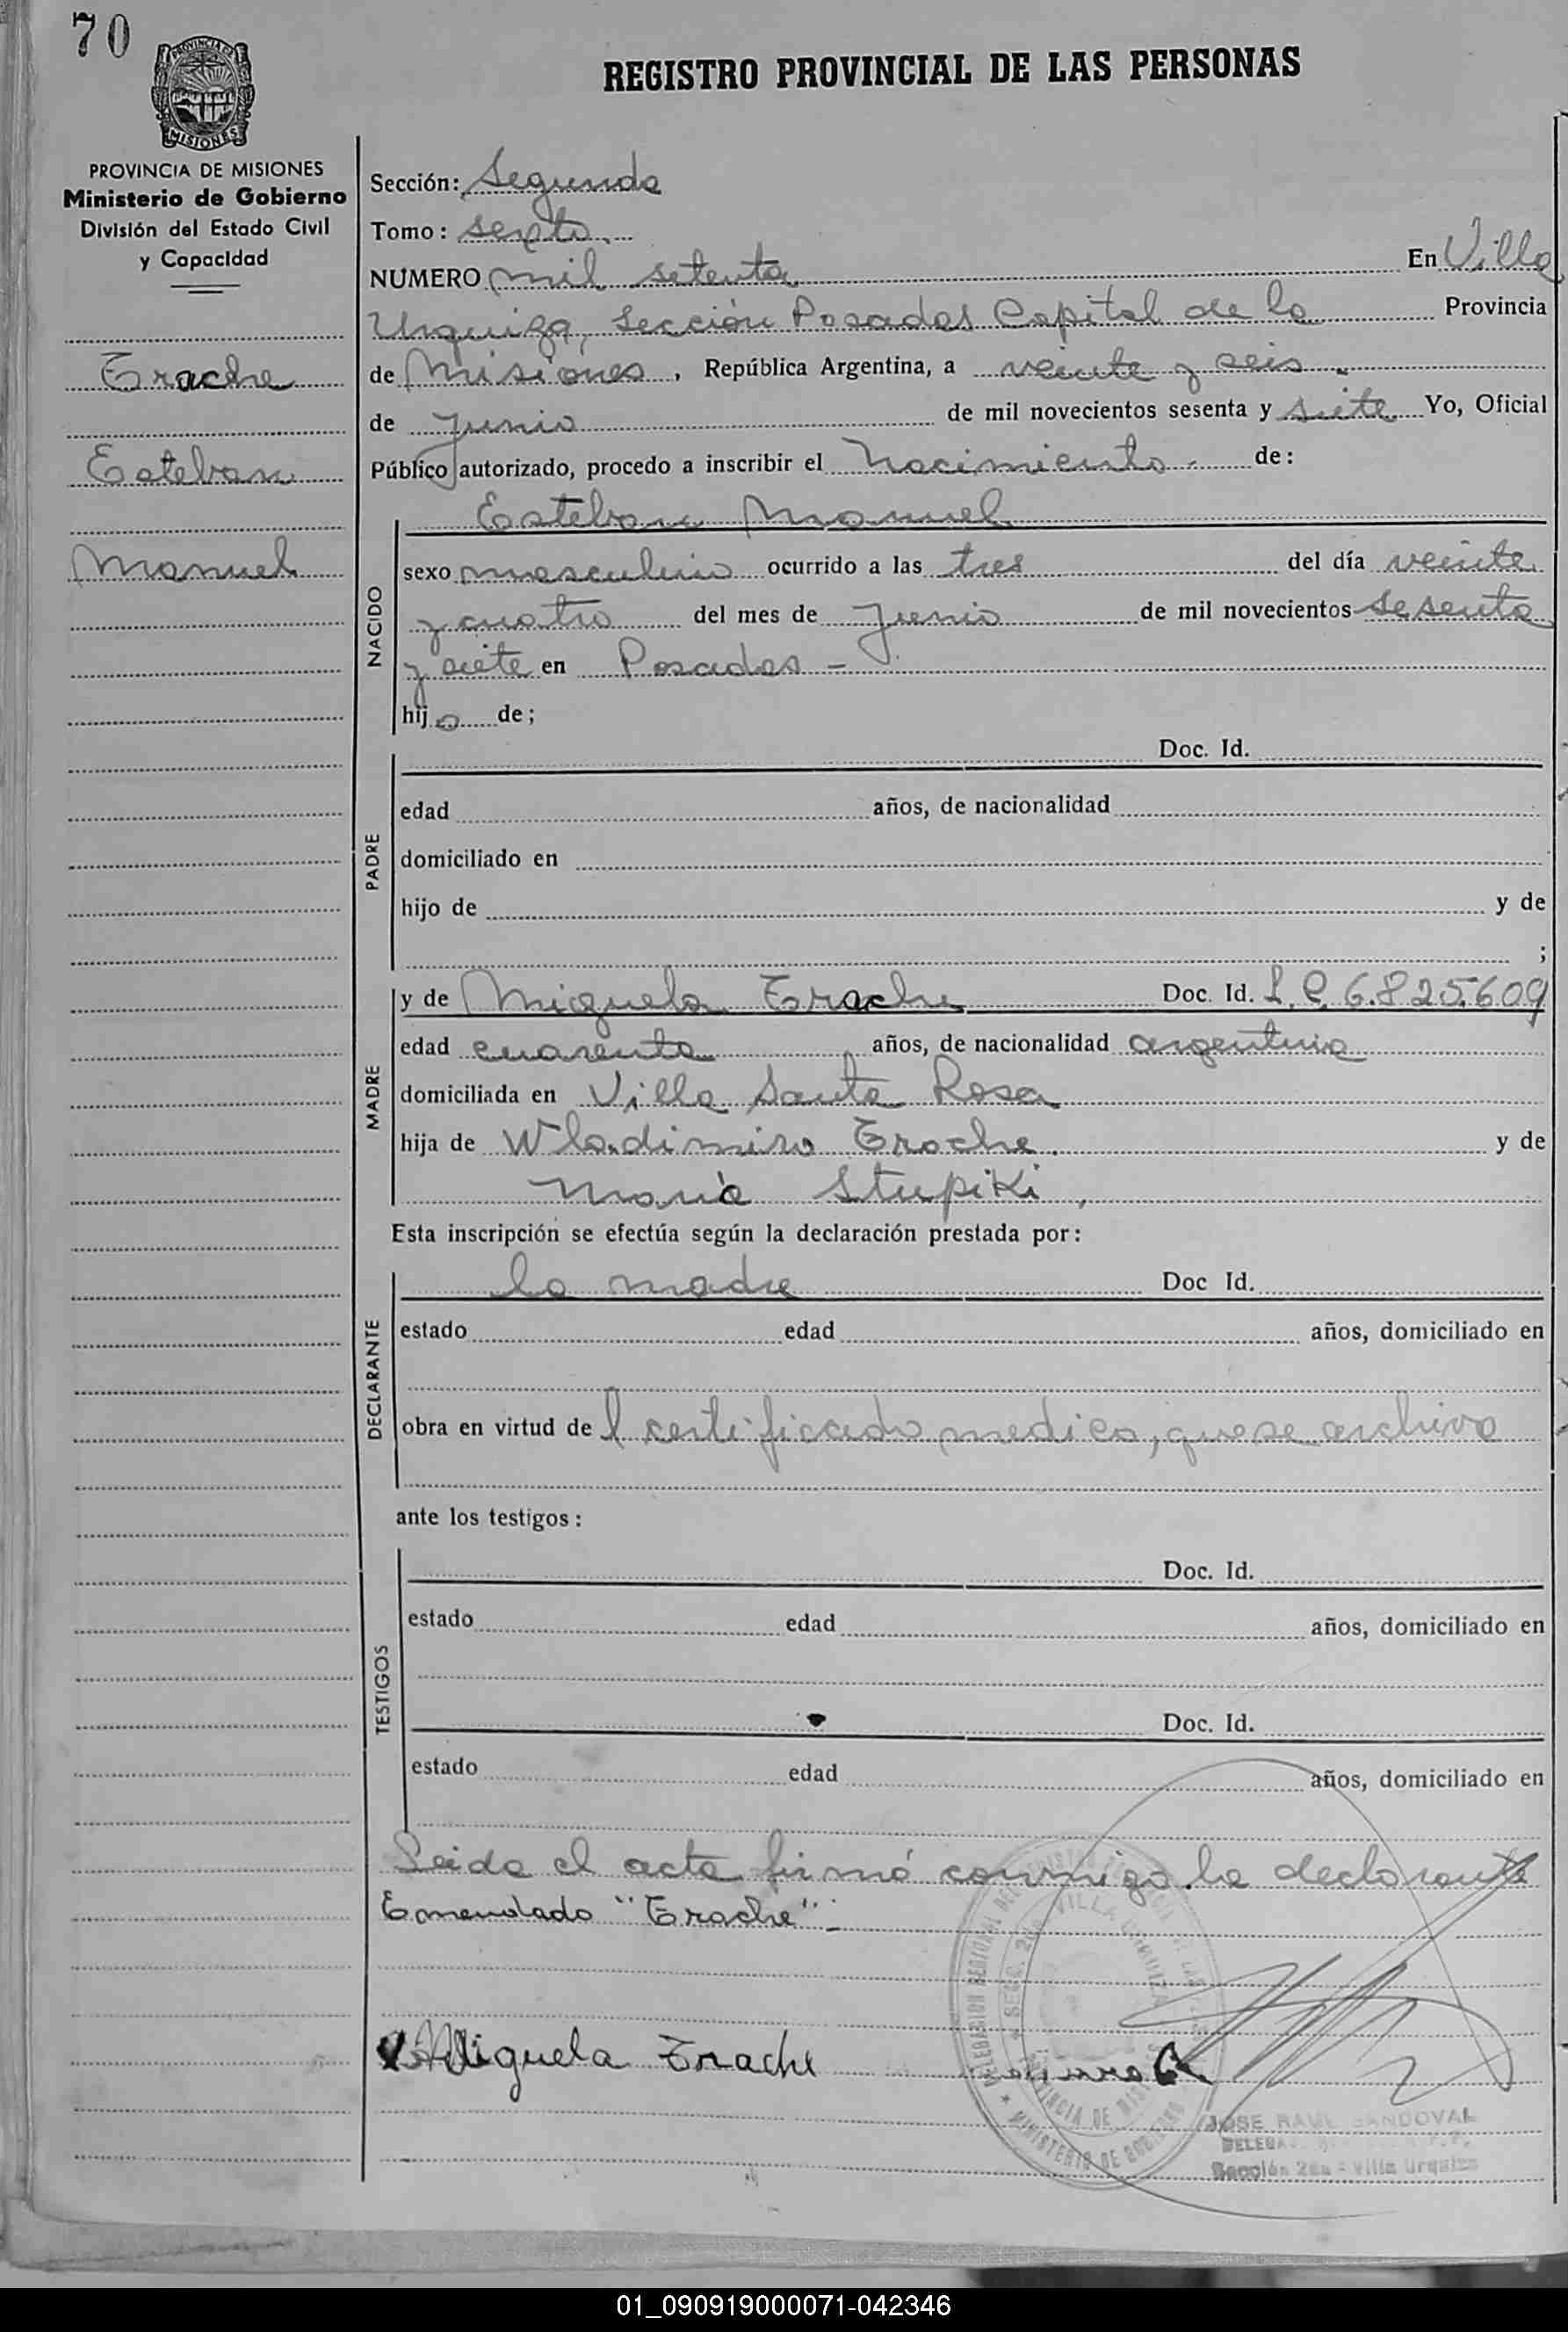 70
REGISTRO PROVINCIAL DE LAS PERSONAS
PROVINCIA DE MISIONES
MISIONES
PROVINCIA DE MISIONES
Ministerio de Gobierno
División del Estado Civil
y Capacidad
Erache
Esteban
Manuel
Sección: Segunda
Tomo: sexto
NUMERO mil setenta En Villa
Urquiza, Sección Posadas Capital de la Provincia
de Misiones, República Argentina, a veinte y seis
de Junio de mil novecientos sesenta y siete Yo, Oficial
Público autorizado, procedo a inscribir el Nacimiento de:
Esteban Manuel
NACIDO
sexo masculino ocurrido a las tres del día veinte
y cuatro del mes de Junio de mil novecientos sesenta
y siete en Posadas -
hijo de;
PADRE
Doc. Id.
edad años, de nacionalidad
domiciliado en
hijo de y de
;
MADRE
y de Miguela Erache Doc. Id. L.C. 6.825.609
edad cuarenta años, de nacionalidad argentina
domiciliada en Villa Santa Rosa
hija de Wladimiro Erache. y de
María Stupiki,
Esta inscripción se efectúa según la declaración prestada por:
DECLARANTE
la madre Doc Id.
estado edad años, domiciliado en
obra en virtud de l certificado medico, que se archiva
ante los testigos:
TESTIGOS
Doc. Id.
estado edad años, domiciliado en
Doc. Id.
estado edad años, domiciliado en
Leida el acta firmó conmigo la declarante
Emendado "Erache".-
Miguela Erache
JOSE RAUL SANDOVAL
Sección 2da - Villa Urquiza
01_090919000071-042346